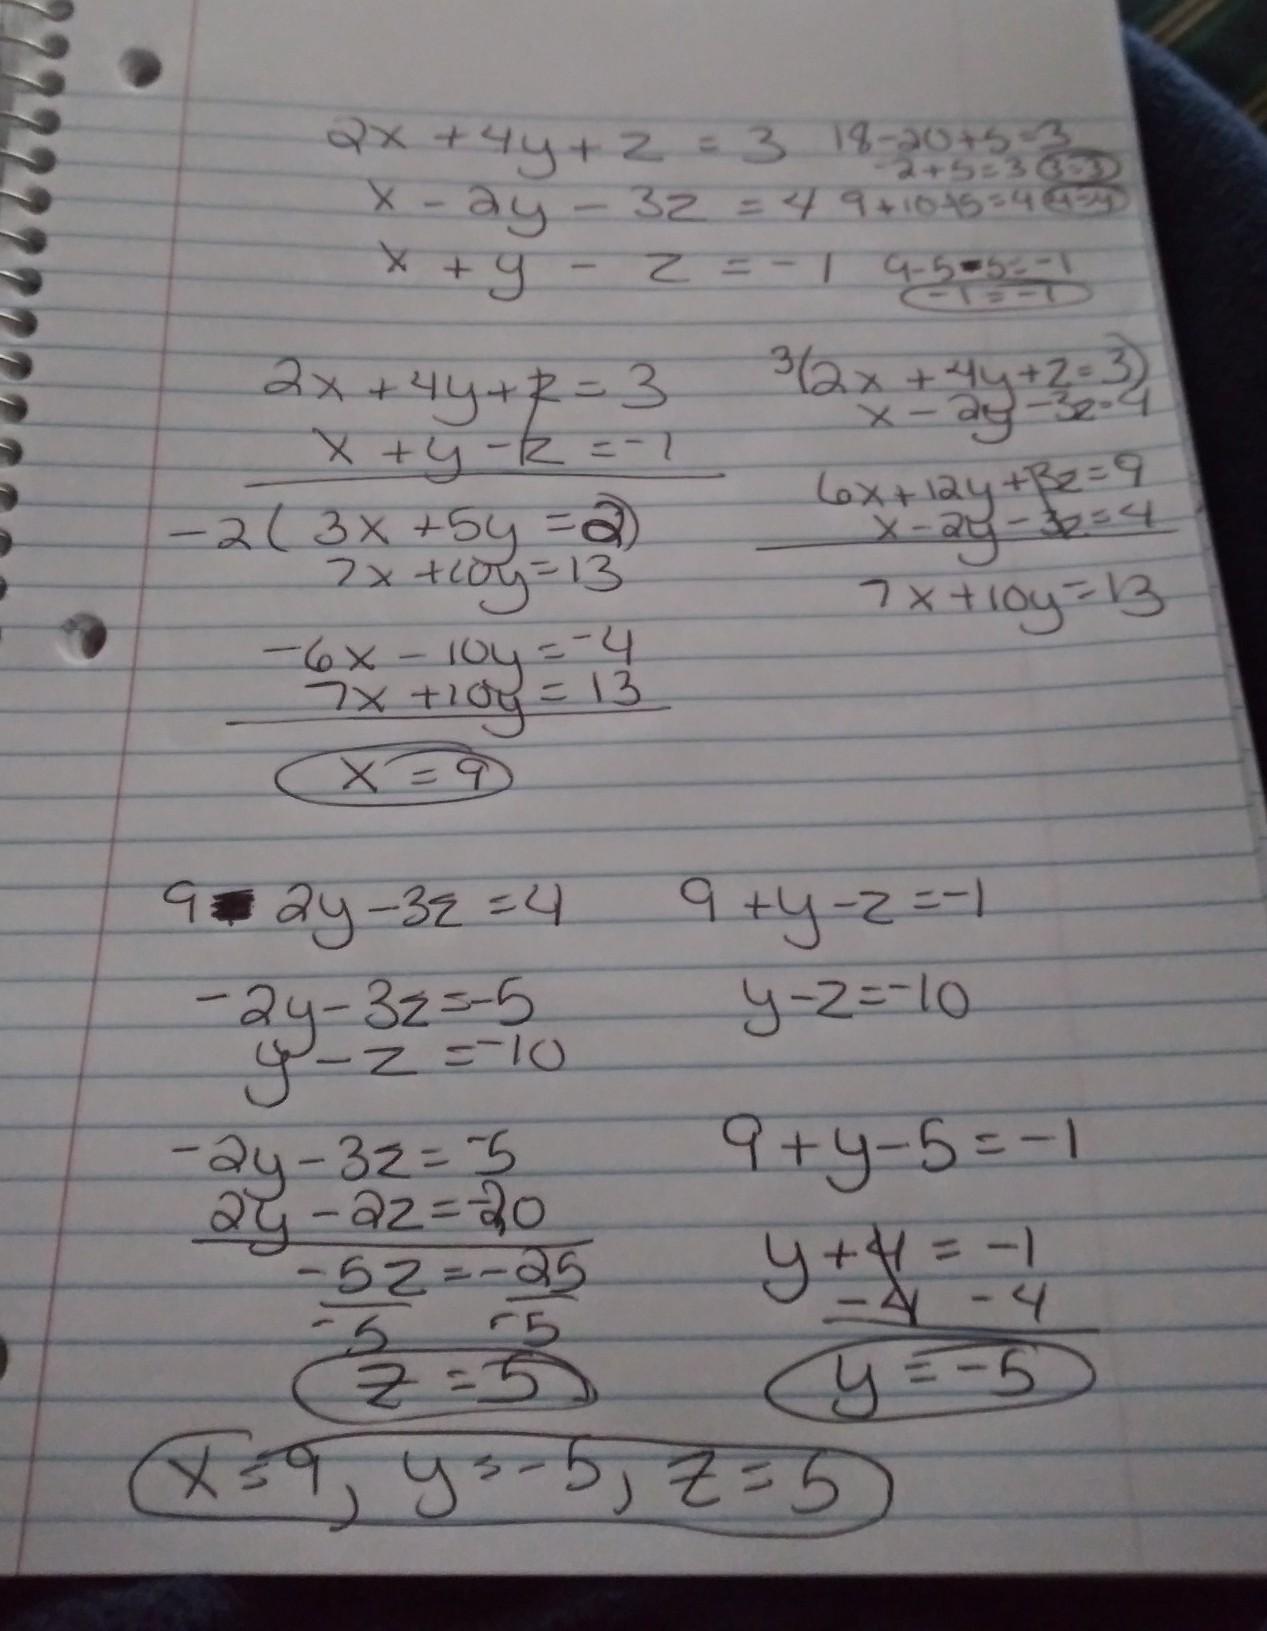 2x + 4y + z = 3 18-20+5=3
-2+5=3 3=3
x - 2y - 3z = 4 9+10-15=4 4=4
x + y - z = -1 9-5-5=-1
-1=-1
2x + 4y + z = 3
x + y - z = -1
-2( 3x + 5y = 2)
7x + 10y = 13
-6x - 10y = -4
7x + 10y = 13
x = 9
3(2x + 4y + z = 3)
x - 2y - 3z = 4
6x + 12y + 3z = 9
x - 2y - 3z = 4
7x + 10y = 13
9 - 2y - 3z = 4
-2y - 3z = -5
y - z = -10
-2y - 3z = -5
2y - 2z = -20
-5z = -25
-5 -5
z = 5
9 + y - z = -1
y - z = -10
9 + y - 5 = -1
y + 4 = -1
-4 -4
y = -5
x = 9, y = -5, z = 5